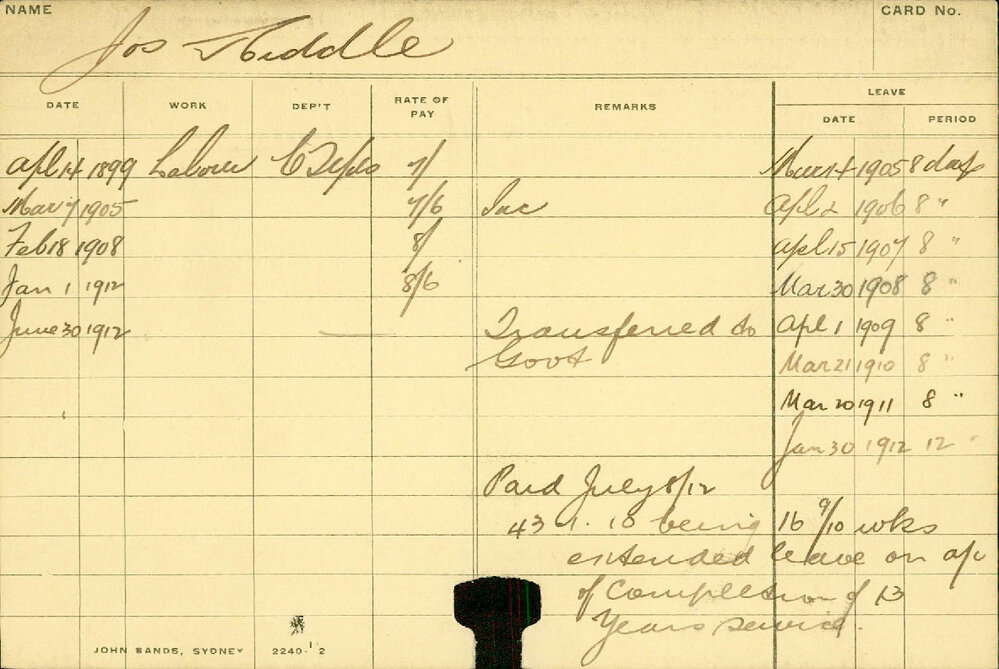 NAME
CARD No.
Jos
DATE WORK DEP'T RATE OF PAY REMARKS LEAVE
DATE PERIOD
Apl 14 1899 Labour 7/ Mar 14 1905 8 days
Mar 7 1905 7/6 Inc Apl 2 1906 8 "
Feb 18 1908 8/ Apl 15 1907 8 "
Jan 1 1912 8/6 Mar 30 1908 8 "
June 30 1912 — Transferred to Apl 1 1909 8 "
Govt Mar 21 1910 8 "
Mar 20 1911 8 "
Jan 30 1912 12 "
Paid July 8/12
43.1.10 being 16 9/10 wks
extended leave on a/c
of Completion of 13
Years service.
JOHN SANDS, SYDNEY 2240-1 2